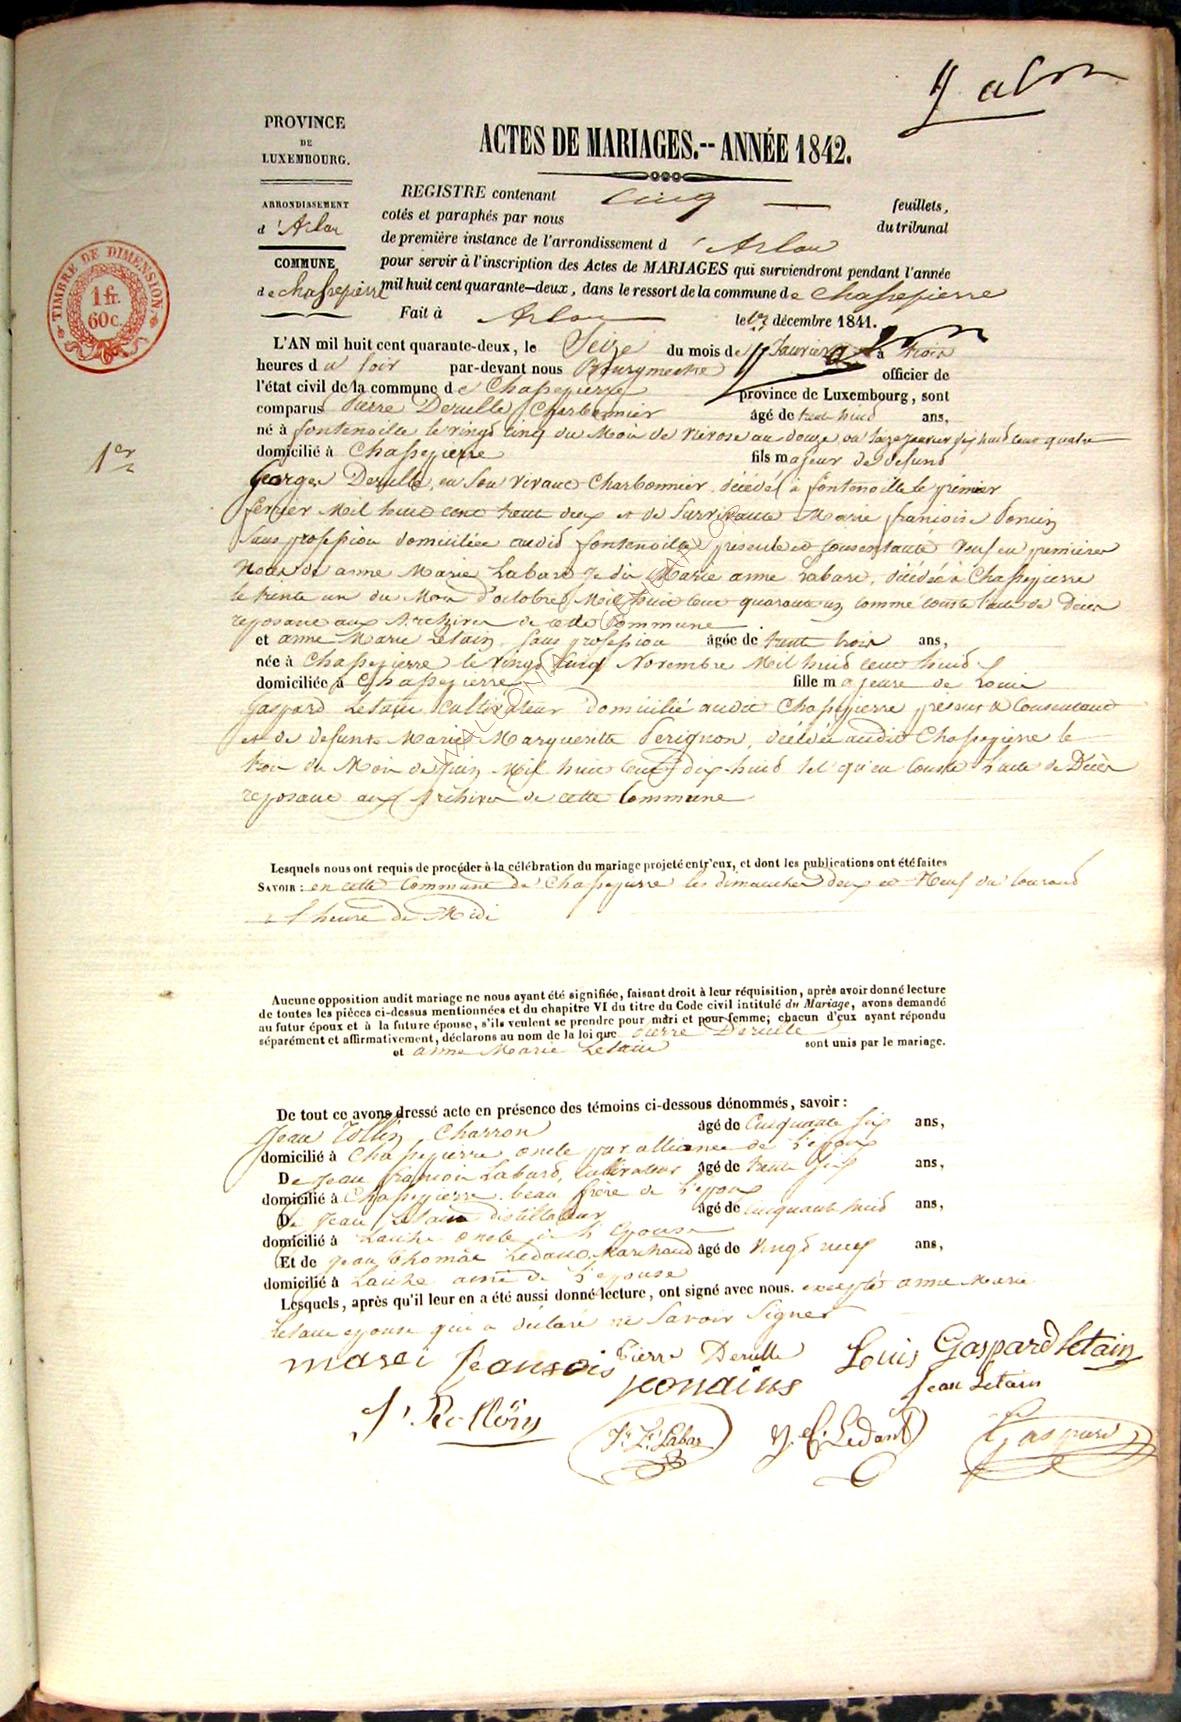 PROVINCE
DE
LUXEMBOURG.
ARRONDISSEMENT
d'Arlon
COMMUNE
de Chassepierre
TIMBRE DE DIMENSION
1 fr.
60 c.
ACTES DE MARIAGES.-- ANNÉE 1842.
REGISTRE contenant cinq feuillets,
cotés et paraphés par nous du tribunal
de première instance de l'arrondissement d'Arlon
pour servir à l'inscription des Actes de MARIAGES qui surviendront pendant l'année
mil huit cent quarante-deux, dans le ressort de la commune de Chassepierre
Fait à Arlon le décembre 1841.
1er
L'AN mil huit cent quarante-deux, le Seize du mois de Janvier à trois
heures du soir par-devant nous Bourgmestre officier de
l'état civil de la commune de Chassepierre province de Luxembourg, sont
comparus Pierre Derulle Charbonnier âgé de trente huit ans,
né à fontenoille le vingt cinq du Mois de Nivose an douze ou seize janvier mil huit cent quatre
domicilié à Chassepierre fils majeur de defunt
Georges Derulle, en son vivant Charbonnier décédé à fontenoille le premier
fevrier Mil huit cent trente deux et de Survivante Marie françoise Poncin
Sans profession domiciliée audit fontenoille présente et consentante Veuf en premieres
Noces de anne Marie Labare Je dis Marie anne Labare, décédée à Chassepierre
le trente un du Mois d'octobre Mil huit cent quarante un comme conste l'acte de Décès
reposant aux Archives de cette Commune
et anne Marie Letain, Sans profession âgée de trente trois ans,
née à Chassepierre le vingt cinq Novembre Mil huit cent huit
domiciliée à Chassepierre fille majeure de Louis
Gaspard Letain cultivateur domicilié audit Chassepierre présent & Consentant
et de defunte Marie Marguerite Perignon, décédée audit Chassepierre le
trois du Mois de Juin Mil huit cent dix huit tel qu'en Conste l'acte de Décès
reposant aux Archives de cette Commune
Lesquels nous ont requis de procéder à la célébration du mariage projeté entr'eux, et dont les publications ont été faites
SAVOIR : en cette Commune de Chassepierre les dimanches deux et Neuf du Courant
à l'heure de Midi
Aucune opposition audit mariage ne nous ayant été signifiée, faisant droit à leur réquisition, après avoir donné lecture
de toutes les pièces ci-dessus mentionnées et du chapitre VI du titre du Code civil intitulé du Mariage, avons demandé
au futur époux et à la future épouse, s'ils veulent se prendre pour mari et pour femme; chacun d'eux ayant répondu
séparément et affirmativement, déclarons au nom de la loi que Pierre Derulle
et anne Marie Letain sont unis par le mariage.
De tout ce avons dressé acte en présence des témoins ci-dessous dénommés, savoir :
Jean Charron âgé de Cinquante six ans,
domicilié à Chassepierre oncle par alliance de l'epoux
De Jean françois Labard, cultivateur âgé de trente six ans,
domicilié à Chassepierre beau frère de l'epoux
De Jean Letain distillateur âgé de cinquante huit ans,
domicilié à Laiche oncle de l'Epouse
Et de Jean Thomas Ledant Marchand âgé de Vingt neuf ans,
domicilié à Laiche ami de l'epouse
Lesquels, après qu'il leur en a été aussi donné lecture, ont signé avec nous. excepté anne Marie
Letain epouse qui a déclaré ne Savoir Signer
Pierre Derulle Louis Gaspard letain
Jean Letain
Labar
Ledant
Gaspard